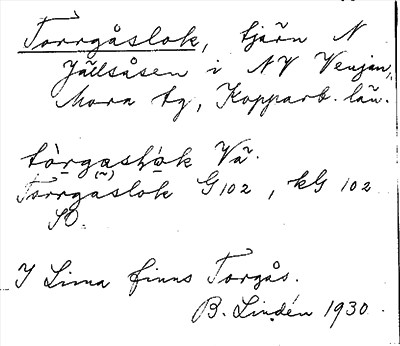 Torrgåslok, tjärn N
Jällsåsen i NV Venjan,
Mora tg, Kopparb. län.
Vä.
Torrgåslok G102, kG 102
SO.
I Lima finns Torgås.
B. Lindén 1930.